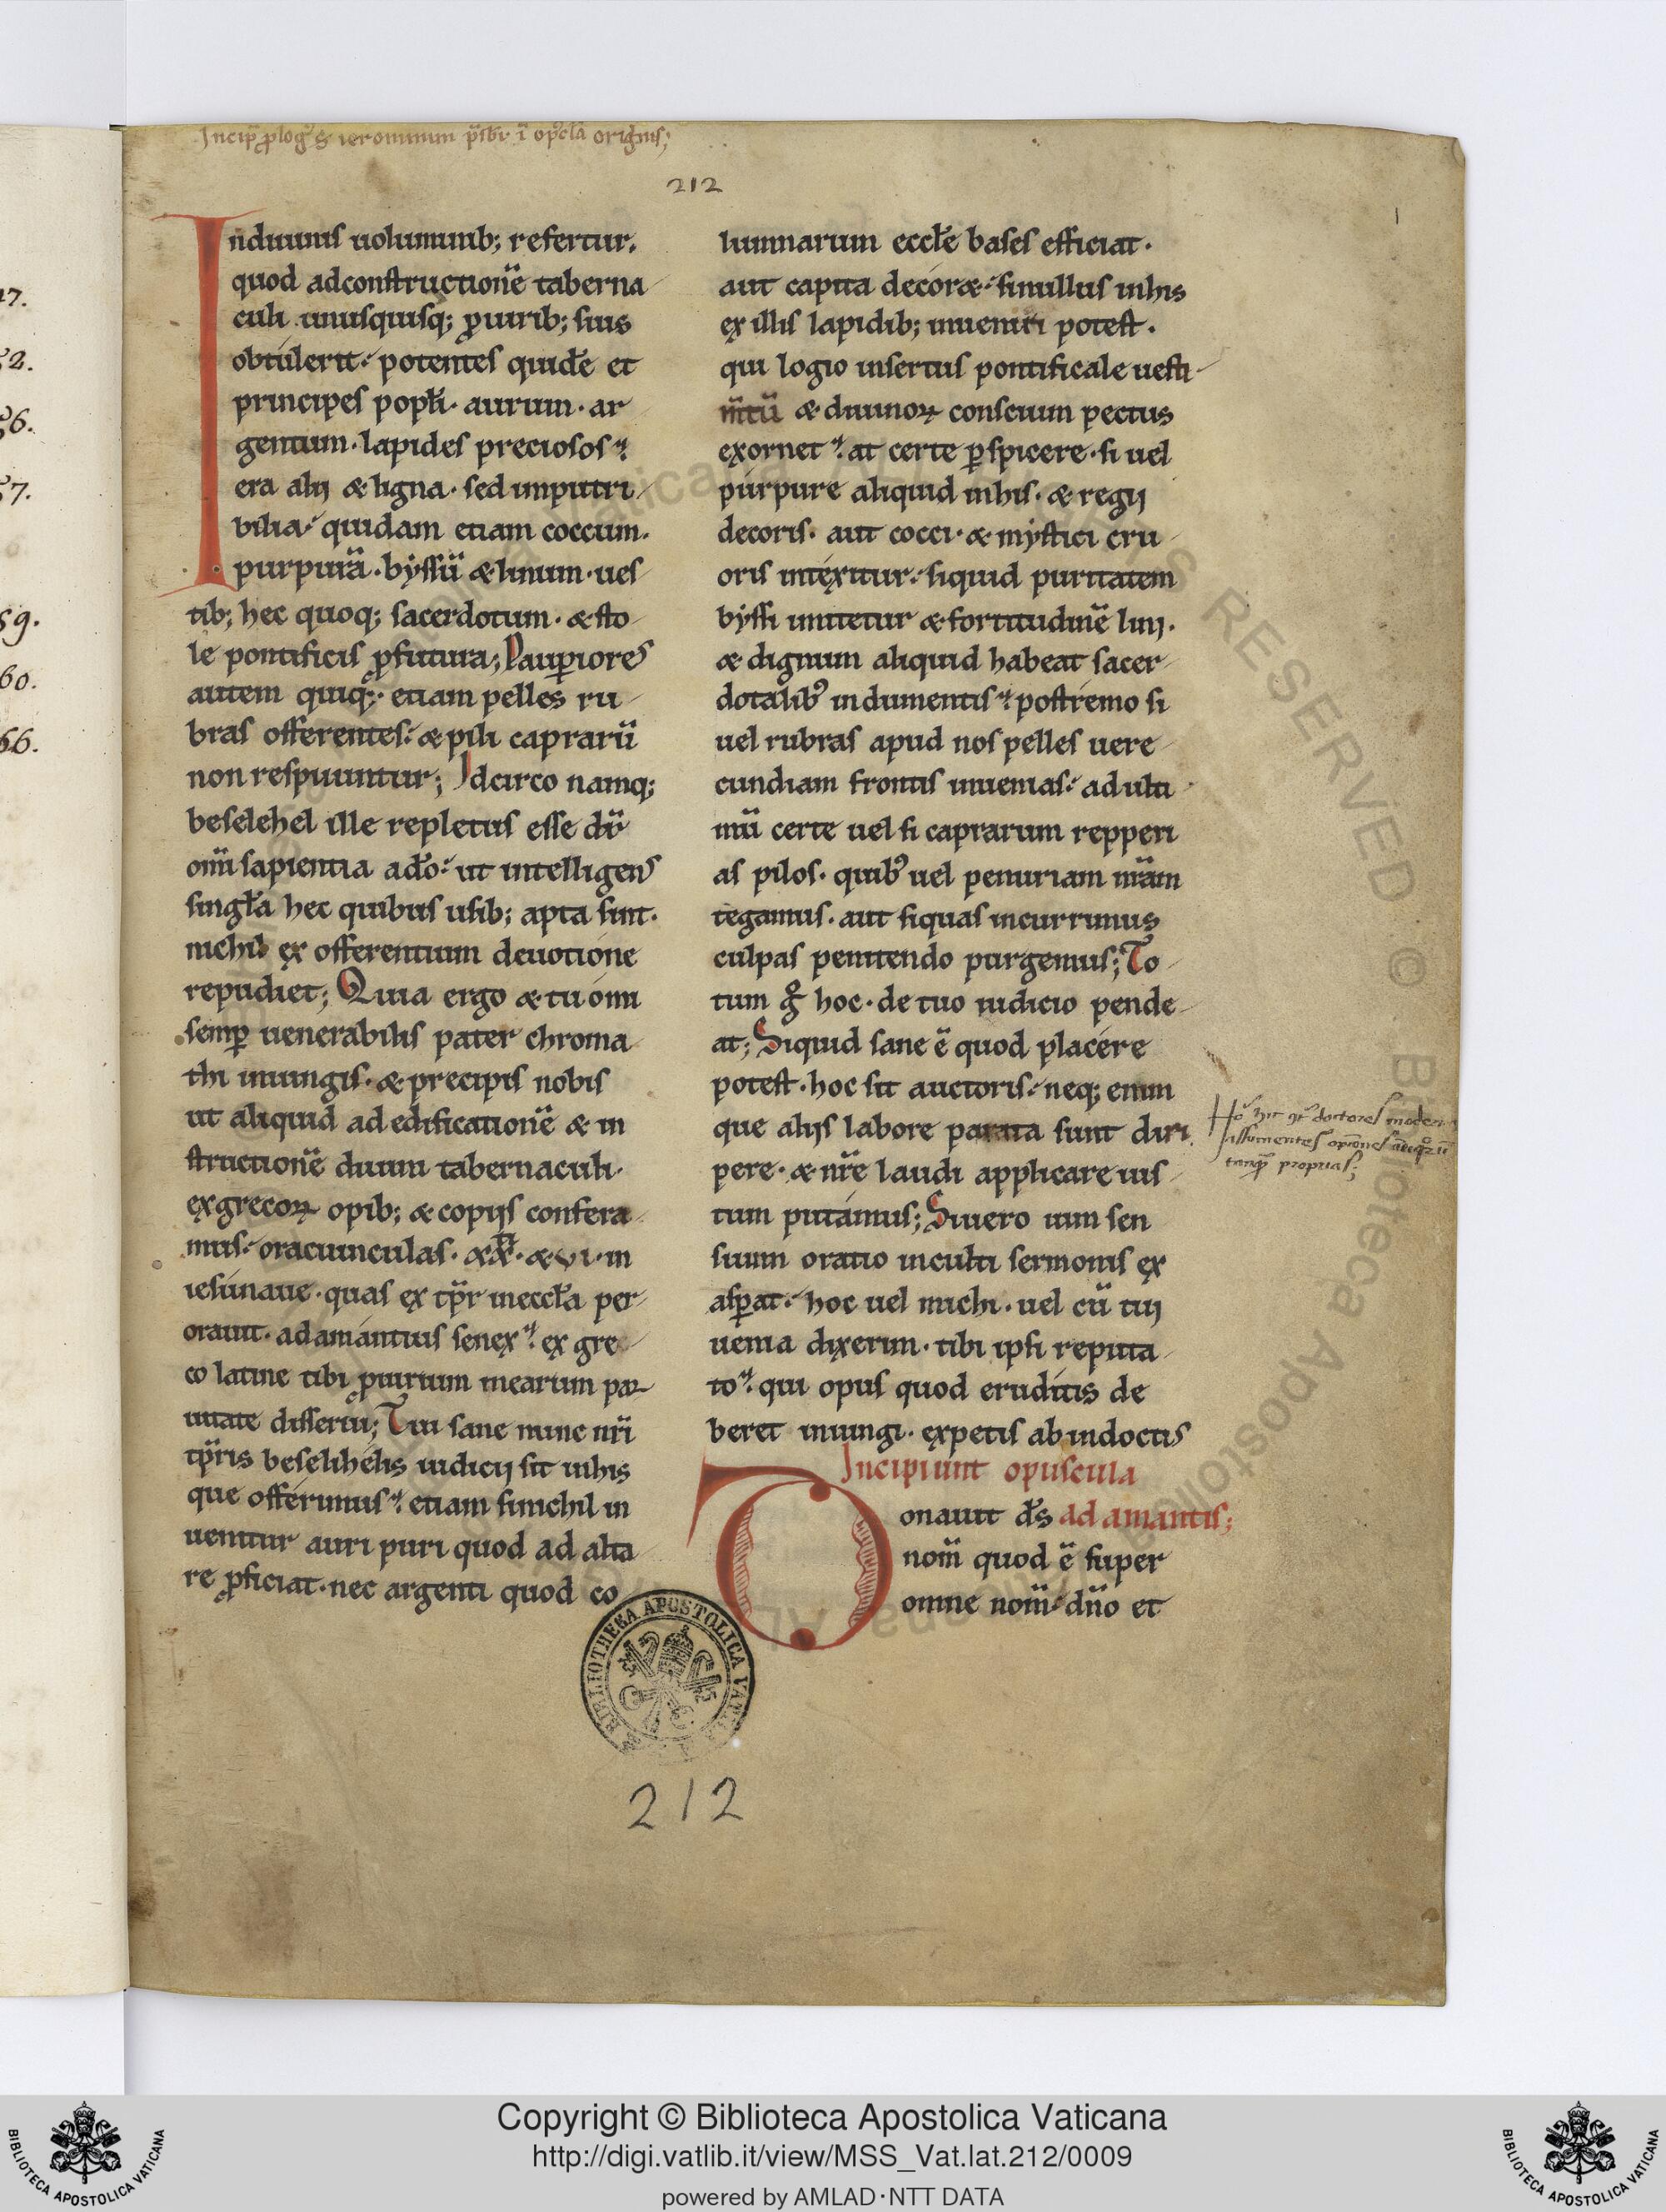 Incip̄ ꝓlog̾ S ieronimum p̄sbr̄i ī op̾cl̄a origin̄is;
212
1
Induinis uoluminib; refertur.
quod adconstructionē taberna
culi unusquisq; ꝓuirib; suis
obtúlerit. potentes quidē et
principes popl̄i. aurum. ar
gentum. lapides preciosos.
era alij & ligna. sed imputri
bilia. quidam etiam coccum.
purpurā. byssū & linum. ues
tib; hec quoq; sacerdotum. & sto
le pontificis ꝓfutura; Pauꝑiores
autem quiq; etiam pelles ru
bras offerentes. & pili caprarū
non respuuntur; Idcirco namq;
beselehel ille repletus esse dr̄
om̄i sapientia adō. ut intelligens
singl̄a hec quibus usib; apta sint.
nichil ex offerentium deuotione
repudiet; Quia ergo & tu om̄i
semꝑ uenerabilis pater chroma
thi iniungis. & precipis nobis
ut aliquid ad edificationē & in
structionē diuini tabernaculi.
exgrecoꝝ opib; & copijs confera
mus. oraciunculas. xx. & vi. in
iesúnaue. quas ex tp̄r ineccl̄a per
orauit. adamántius senex. ex gre
co latine tibi ꝓuirium mearum par
uitate disserui; Tui sane nunc nr̄i
tp̄ris beselihélis iudicij sit inhis
que offérimus. etiam sinichil in
uenitur auri puri quod ad alta
re ꝓficiat. nec argenti quod co
lumnarum eccl̄e bases efficiat.
aut capita decóræ. sinullus inhis
ex illis lapidib; inueniri potest.
qui logio insertus pontificale uesti
m̄tū & diuinoꝝ conscium pectus
exornet. at certe ꝑspicere. si uel
púrpure aliquid inhis. & regij
decoris. aut cocci. & mystici cru
oris intéxitur. siquid puritatem
byssi imitetur & fortitudinē lini.
& dignum aliquid habeat sacer
dotálib̾ indumentis. postrémo si
uel rubras apud nos pelles uere
cundiam frontis inuenias. ad ulti
mū certe uel si caprarum repperi
as pilos. quib̾ uel penuriam nr̄am
tegamus. aut siquas incurrimus
culpas penitendo purgemus; To
tum gͦ hoc. de tuo iudicio pende
at; Siquid sane ē quod placére
potest. hoc sit auctoris. neq; enim
que alijs labore parata sunt diri
pere. & nr̄e laudi applicare ius
tum putámus; Siuero uim sen
suum oratio inculti sermonis ex
asꝑat. hoc uel michi. uel cū tui
uenia dixerim. tibi ipsi reputa
to. qui opus quod erudítis de
beret iniungi. expetis ab indoctis
Incipiunt opuscula
Donauit d̄s ad amantis;
nom̄ quod ē super
omne nom̄. dn̄o et
doctores modern
assumentes opiones
tanq̄ proprias;
BIBLIOTHECA APOSTOLICA VATICANA
212
17.
52.
56.
57.
59.
60.
66.
Copyright © Biblioteca Apostolica Vaticana
http://digi.vatlib.it/view/MSS_Vat.lat.212/0009
powered by AMLAD·NTT DATA
BIBLIOTECA APOSTOLICA VATICANA
BIBLIOTECA APOSTOLICA VATICANA